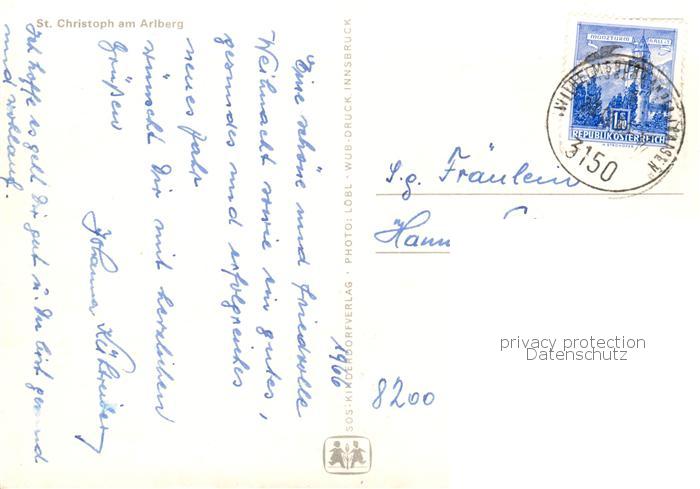 St. Christoph am Arlberg
Eine schöne und friedvolle
Weihnacht sowie ein gutes,
gesundes und erfolgreiches
neues Jahr
wünscht Dir mit herzlichen
Grüßen
Johanna
Ich hoffe es geht Dir gut u. Du bist gesund
und wohlauf.
1966
SOS-KINDERDORFVERLAG · PHOTO: LÖBL · WUB-DRUCK INNSBRUCK
MÜNZTURM HALL i. T.
1.20
REPUBLIK ÖSTERREICH
WILHELMSBURG AN DER TRAISEN
3150
S.g. Fräulein
Hann
8200
privacy protection
Datenschutz